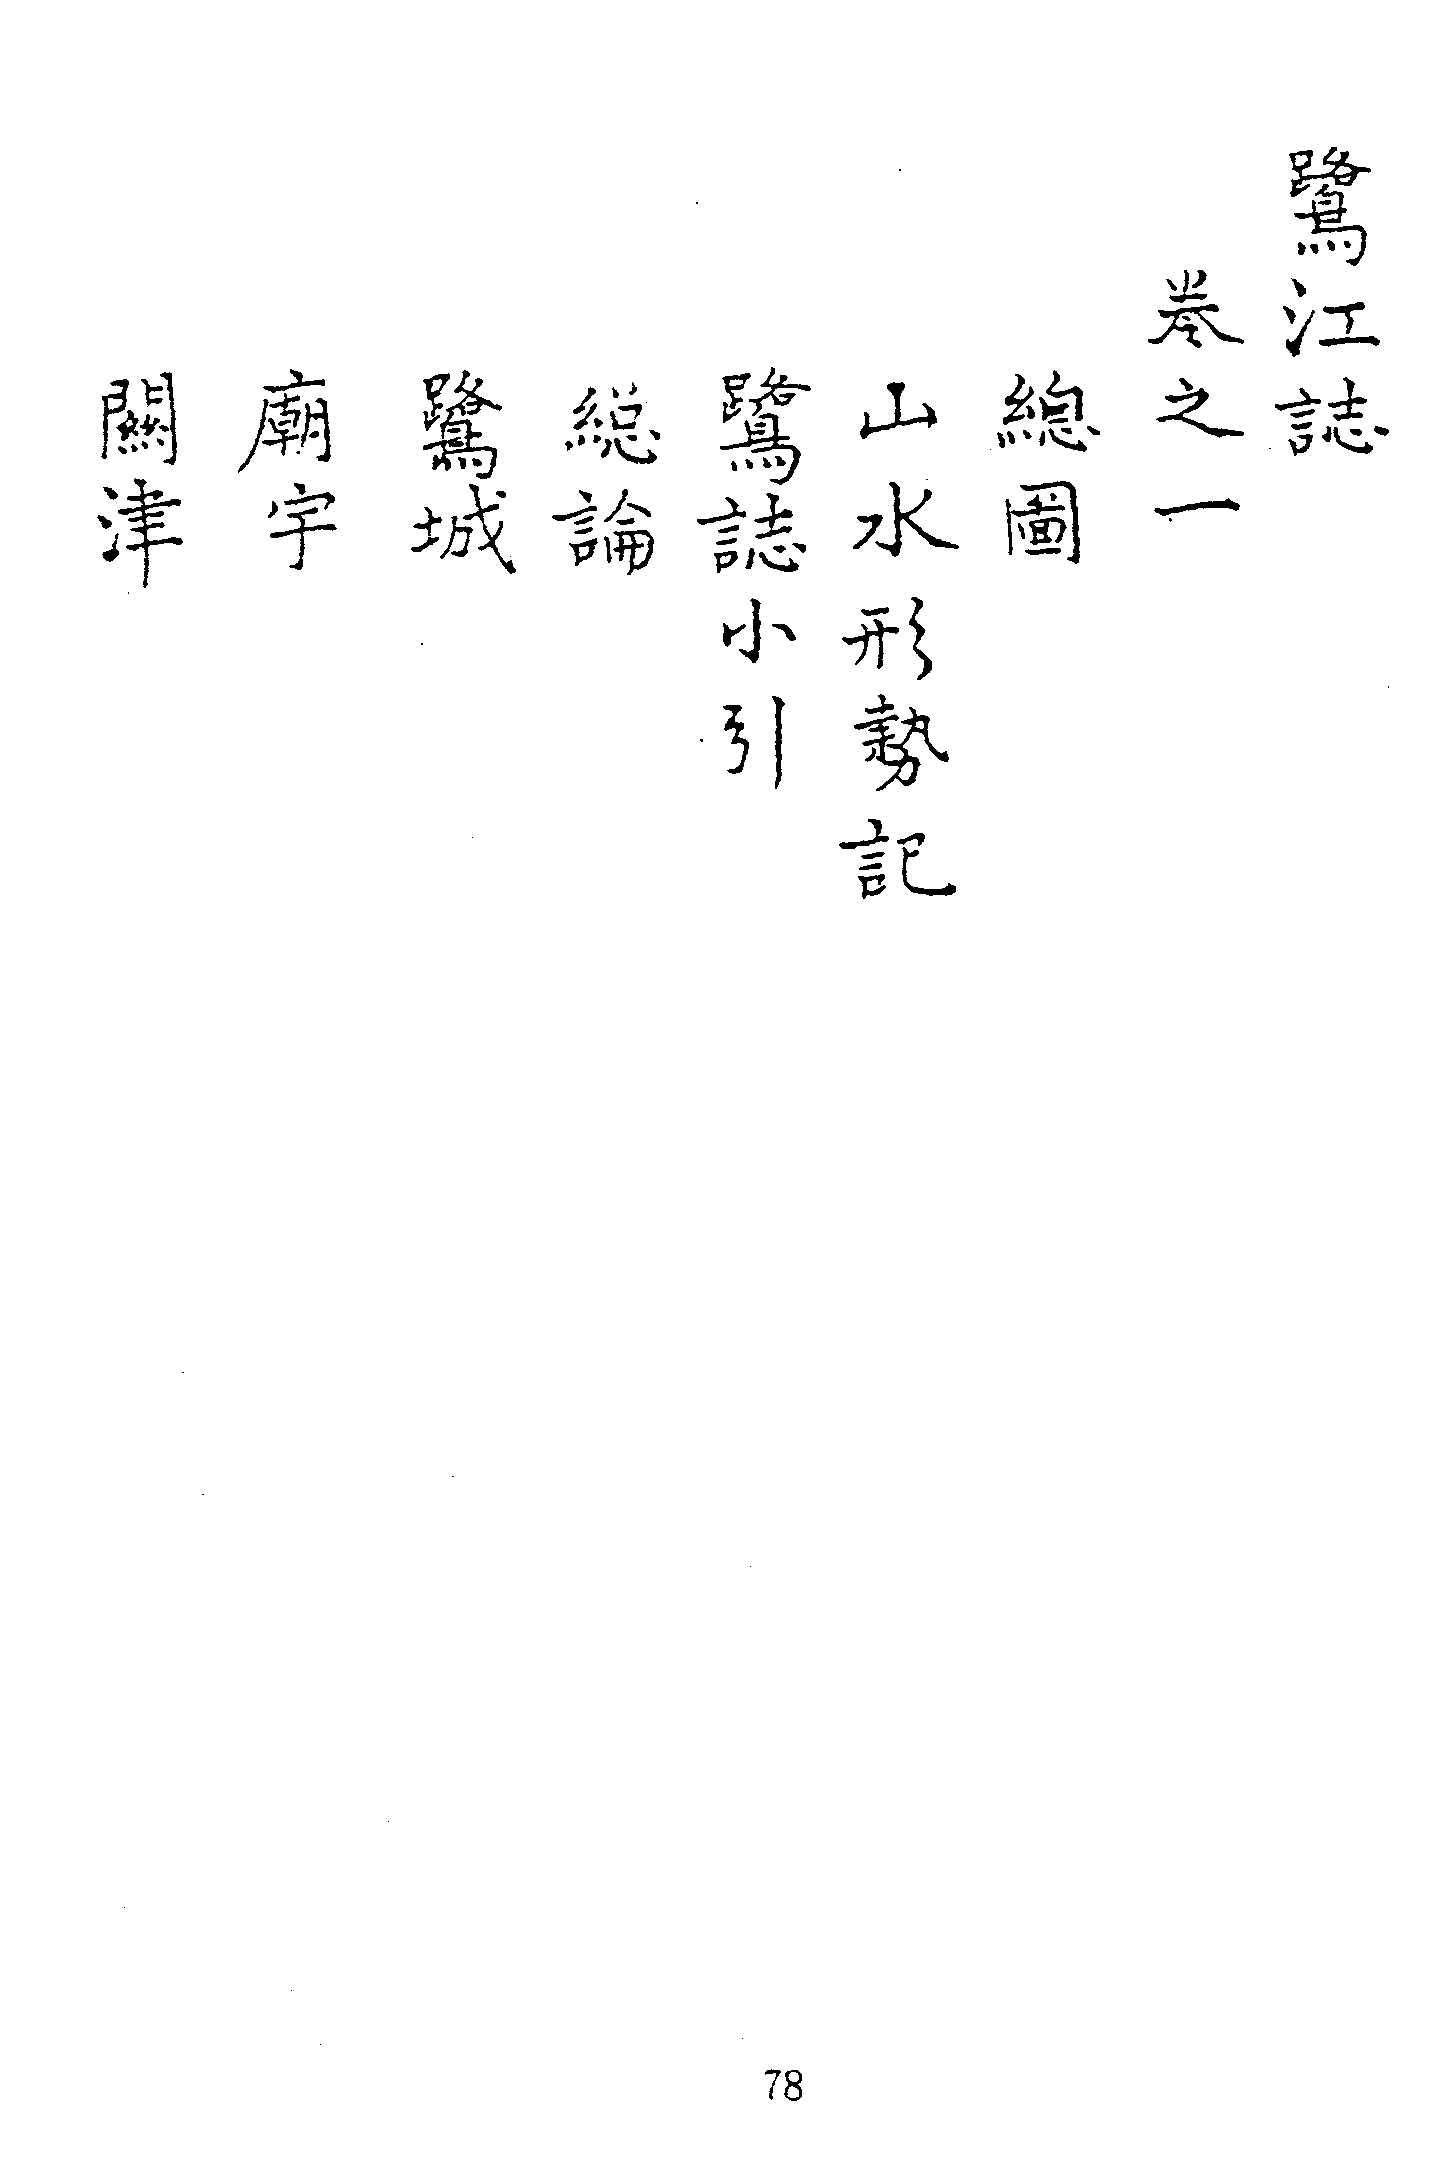 鷺江誌
卷之一
總圖
山水形勢記
鷺誌小引
総論
鷺城
廟宇
關津
78